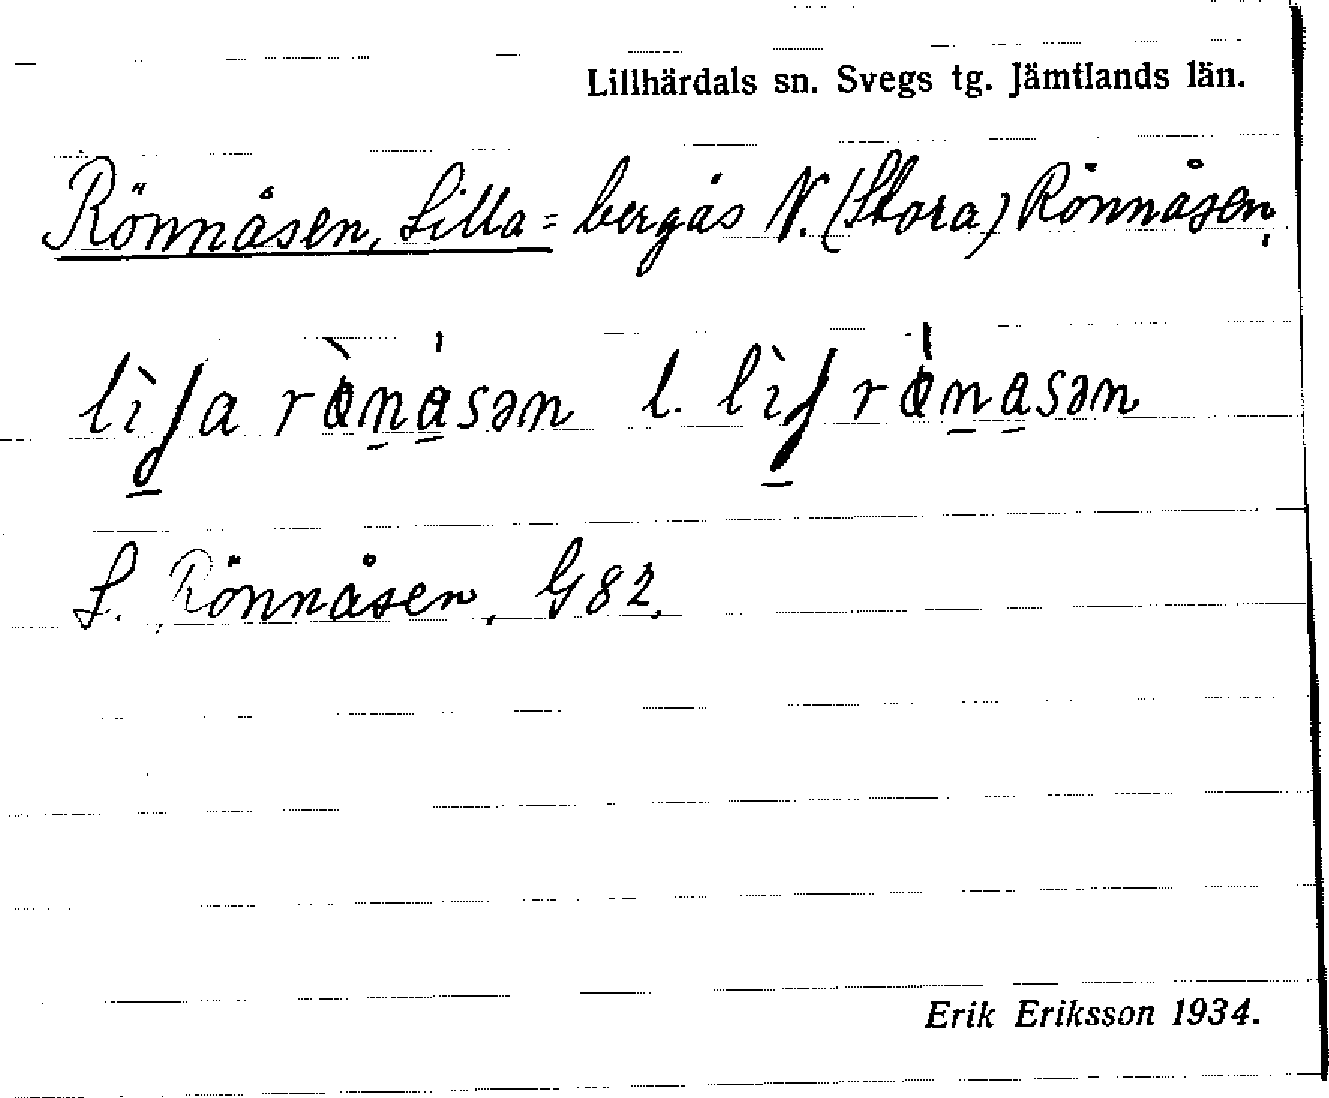 Lillhärdals sn. Svegs tg. Jämtlands län.
Rönnåsen, Lilla = bergås N. (Stora) Rönnåsen,
L. Rönnåsen, G82.
Erik Eriksson 1934.